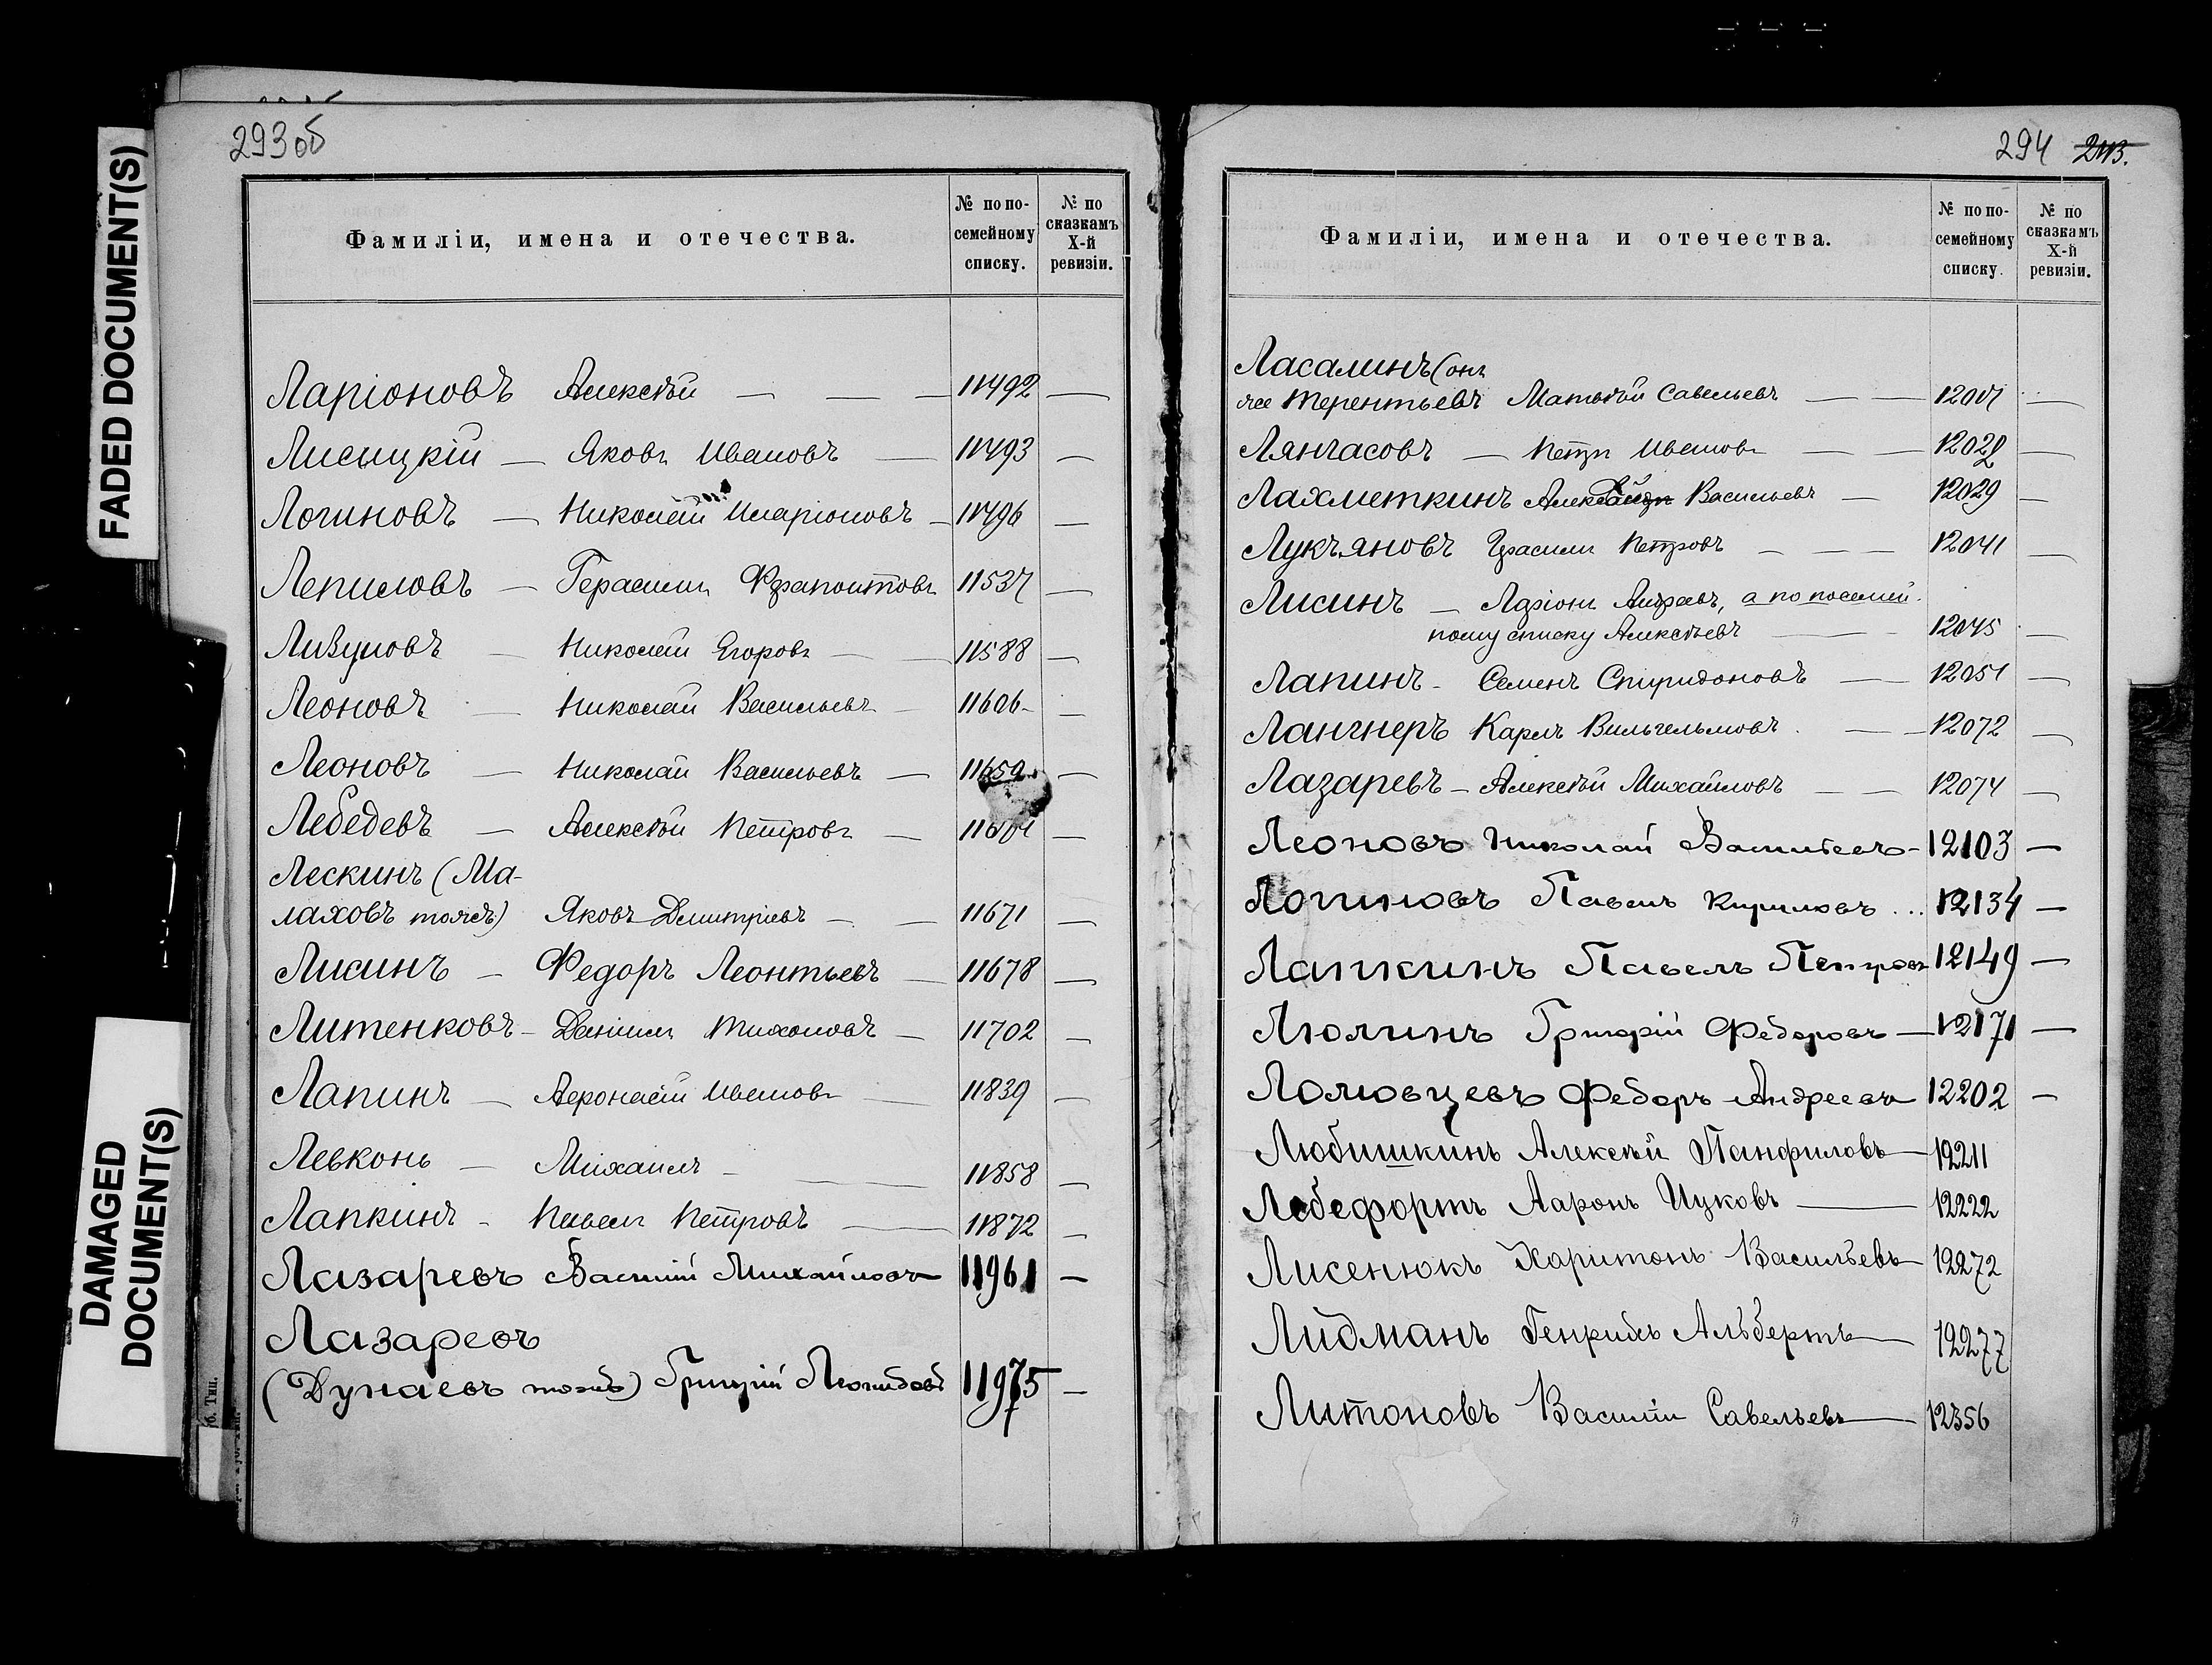 FADED DOCUMENT(S)
DAMAGED
DOCUMENT(S)
293об
Фамиліи, имена и отечества.
№ по по-
семейному
списку.
№ по
сказкамъ
X-й
ревизіи.
Ларіоновъ Алексѣй — — — 11492 —
Лисицкій — Яковъ Ивановъ — 11493 —
Логиновъ — Николай Иларіоновъ — 11496 —
Лепиловъ — Герасимъ 11537 —
Николай Егоровъ — — 11588 —
Леоновъ — Николай Васильевъ — 11606 —
Леоновъ — Николай Васильевъ — —
Лебедевъ — Алексѣй Петровъ — —
Лескинъ (Ма-
лаховъ тожъ) Яковъ Дмитріевъ — — 11671 —
Лисинъ — Федоръ Леонтьевъ — 11678 —
Литенковъ — Даніилъ Тихоновъ — 11702 —
Лапинъ — Афонасій Ивановъ — 11839 —
Левконь — Михаилъ — — 11858 —
Лапкинъ - Павелъ Петровъ — 11872 —
Лазаревъ Василій Михайловъ 11961 —
Лазаревъ
(Дунаевъ тожъ) Григорій 11975 —
294 243.
Фамиліи, имена и отечества.
№ по по-
семейному
списку.
№ по
сказкамъ
X-й
ревизіи.
Ласалинъ (онъ
же Терентьевъ Матвѣй Савельевъ — — —
Лянгасовъ — Петръ Ивановъ — — —
Лахметкинъ Васильевъ — 12029 —
Лукъяновъ Герасимъ Петровъ — — — 12041 —
Лисинъ — Ларіонъ Андреевъ, а по посемей-
ному списку Алексѣевъ — - 12045 —
Лапинъ - Семенъ Спиридоновъ — 12051 —
Лангнеръ Карлъ Вильгельмовъ — — 12072 —
Лазаревъ — Алексѣй Михайловъ — — 12074 —
Леоновъ Николай Васильевъ - 12103 —
Логиновъ Павелъ Кириловъ ... 12134 —
Лапкинъ Павелъ Петровъ 12149 —
Люлинъ Григорій Федоровъ — 12171 —
Ломовцевъ Федоръ Андреевъ 12202 —
Любишкинъ Алексѣй Панфиловъ — 12211
Лебефортъ Ааронъ Ицковъ — 12222
Лисенюкъ Харитонъ Васильевъ — 12272
Лидманъ Генрихъ Альбертъ — 12277
Литоновъ Василій Савельевъ — 12356